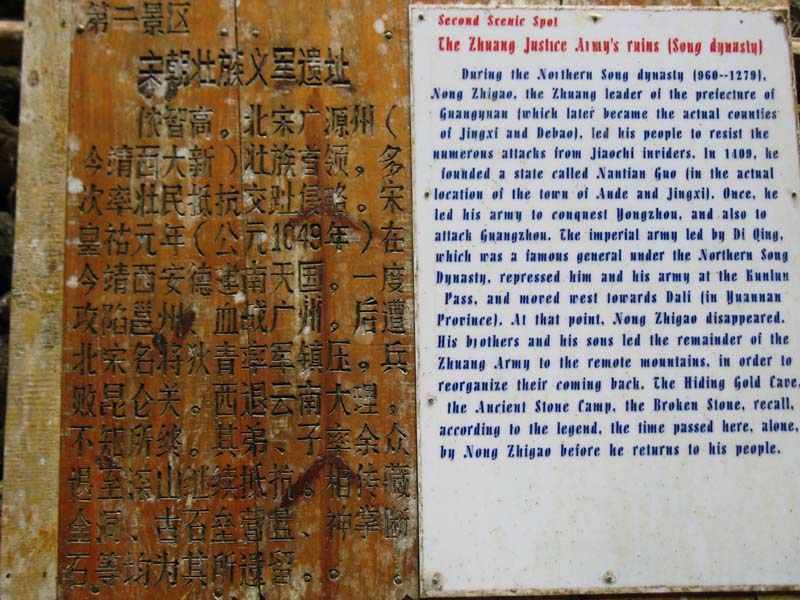 第二景区
宋朝壮族义军遗址
侬智高。北宋广源州（
今靖西大新）壮族首领，多
次率壮民抵抗交趾侵略。宋
皇祐元年（公元1049年）在
今靖西安德建南天国，一度
攻陷邕州，血战广州，后遭
北宋名将狄青率军镇压，兵
败昆仑关。西退云南大理，
不知所终。其弟、子率余众
退至深山继续抵抗。相传藏
金洞、古石垒营盘、神掌断
石等均为其所遗留。
Second Scenic Spot
The Zhuang Justice Army's ruins (Song dynasty)
During the Northern Song dynasty (960--1279),
Nong Zhigao, the Zhuang leader of the prefecture of
Guangynan (which later became the actual counties
of Jingxi and Debao), led his people to resist the
numerous attacks from Jiaochi inviders. In 1409, he
founded a state called Nantian Guo (in the actual
location of the town of Ande and Jingxi). Once, he
led his army to conquest Yongzhou, and also to
attack Guangzhou. The imperial army led by Di Qing,
which was a famous general under the Northern Song
Dynasty, repressed him and his army at the Kunlun
Pass, and moved west towards Dali (in Yuannan
Province). At that point, Nong Zhigao disappeared.
His brothers and his sons led the remainder of the
Zhuang Army to the remote mountains, in order to
reorganize their coming back. The Hiding Gold Cave,
the Ancient Stone Camp, the Broken Stone, recall,
according to the legend, the time passed here, alone,
by Nong Zhigao before he returns to his people.